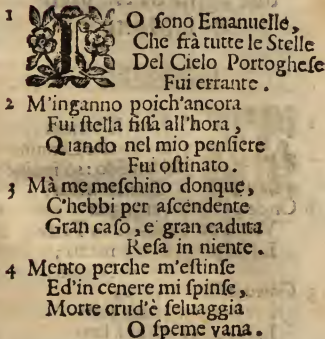 1 IO ſono Emanuelle,
Che frà tutte le Stelle
Del Cielo Portogheſe
Fui errante.
2 M'inganno poich'ancora
Fui ſtella fiſſa all'hora,
Quando nel mio penſiere
Fui oſtinato.
3 Mà me meſchino donque,
C'hebbi per aſcendente
Gran caſo, e gran caduta
Reſa in niente.
4 Mento perche m'eſtinſe
Ed'in cenere mi ſpinſe,
Morte crud'è ſeluaggia
O ſpeme vana.